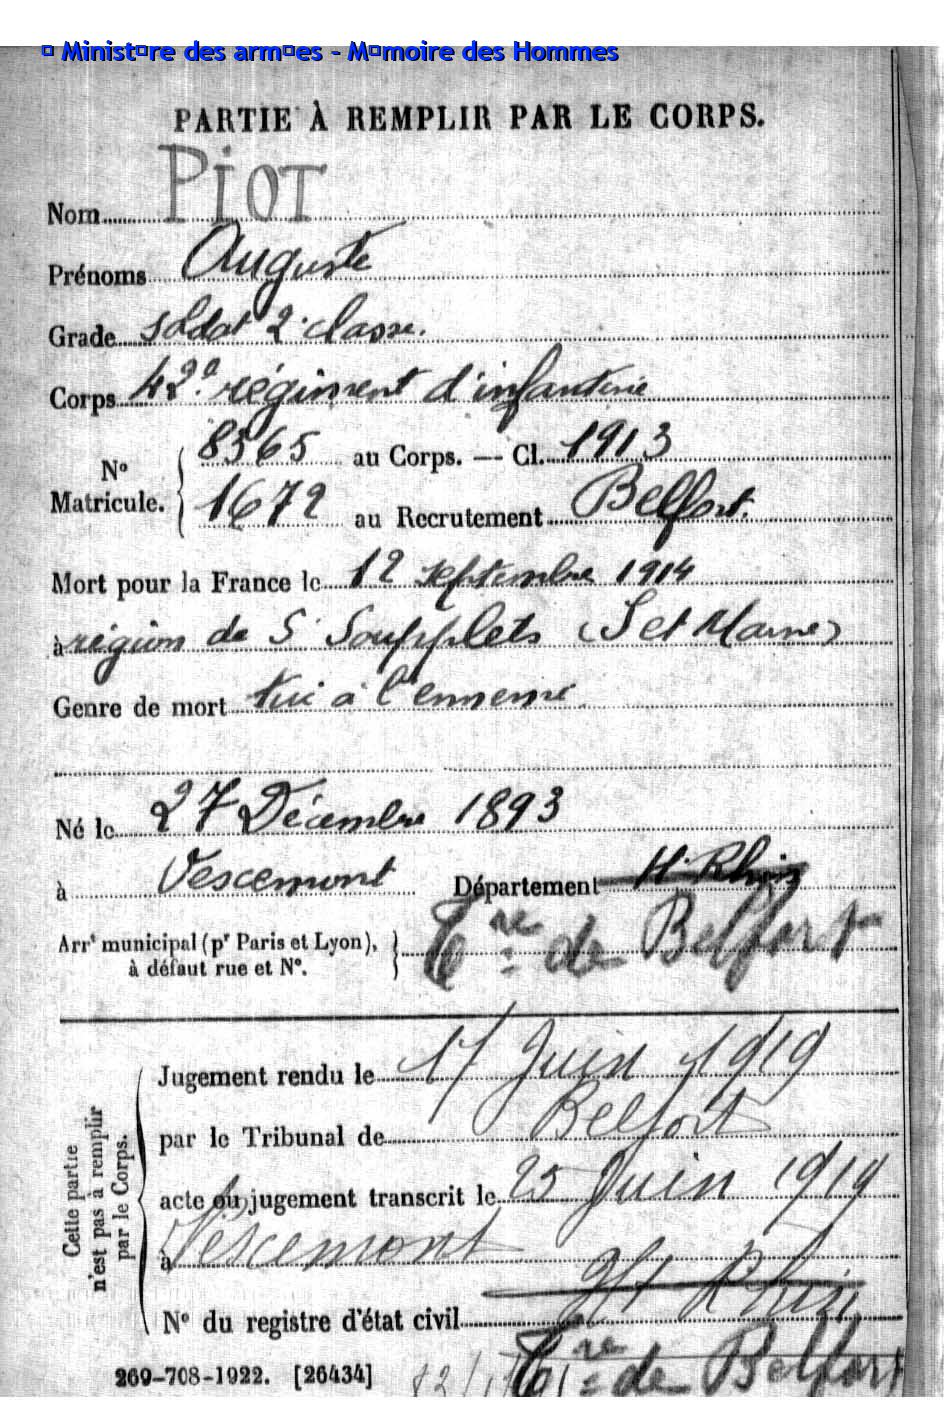 � Minist�re des arm�es - M�moire des Hommes
PARTIE À REMPLIR PAR LE CORPS.
Nom PIOT
Prénoms Auguste
Grade soldat 2e classe.
Corps 42e régiment d'infanterie
8365 au Corps. — Cl. 1913
No Matricule.
1672 au Recrutement Belfort.
Mort pour la France le 12 septembre 1914
à région de St Soupplets (S et Marne)
Genre de mort tué à l'ennemi
Né le 27 Décembre 1893
à Vescemont Département Ht Rhin
Tre de Belfort
Arrt municipal (pr Paris et Lyon),
à défaut rue et No.
Jugement rendu le 17 Juin 1919
par le Tribunal de Belfort
acte ou jugement transcrit le 25 Juin 1919
à Vescemont
Ht Rhin
No du registre d'état civil
Tre de Belfort
Cette partie
n'est pas à remplir
par le Corps.
269-708-1922. [26434]